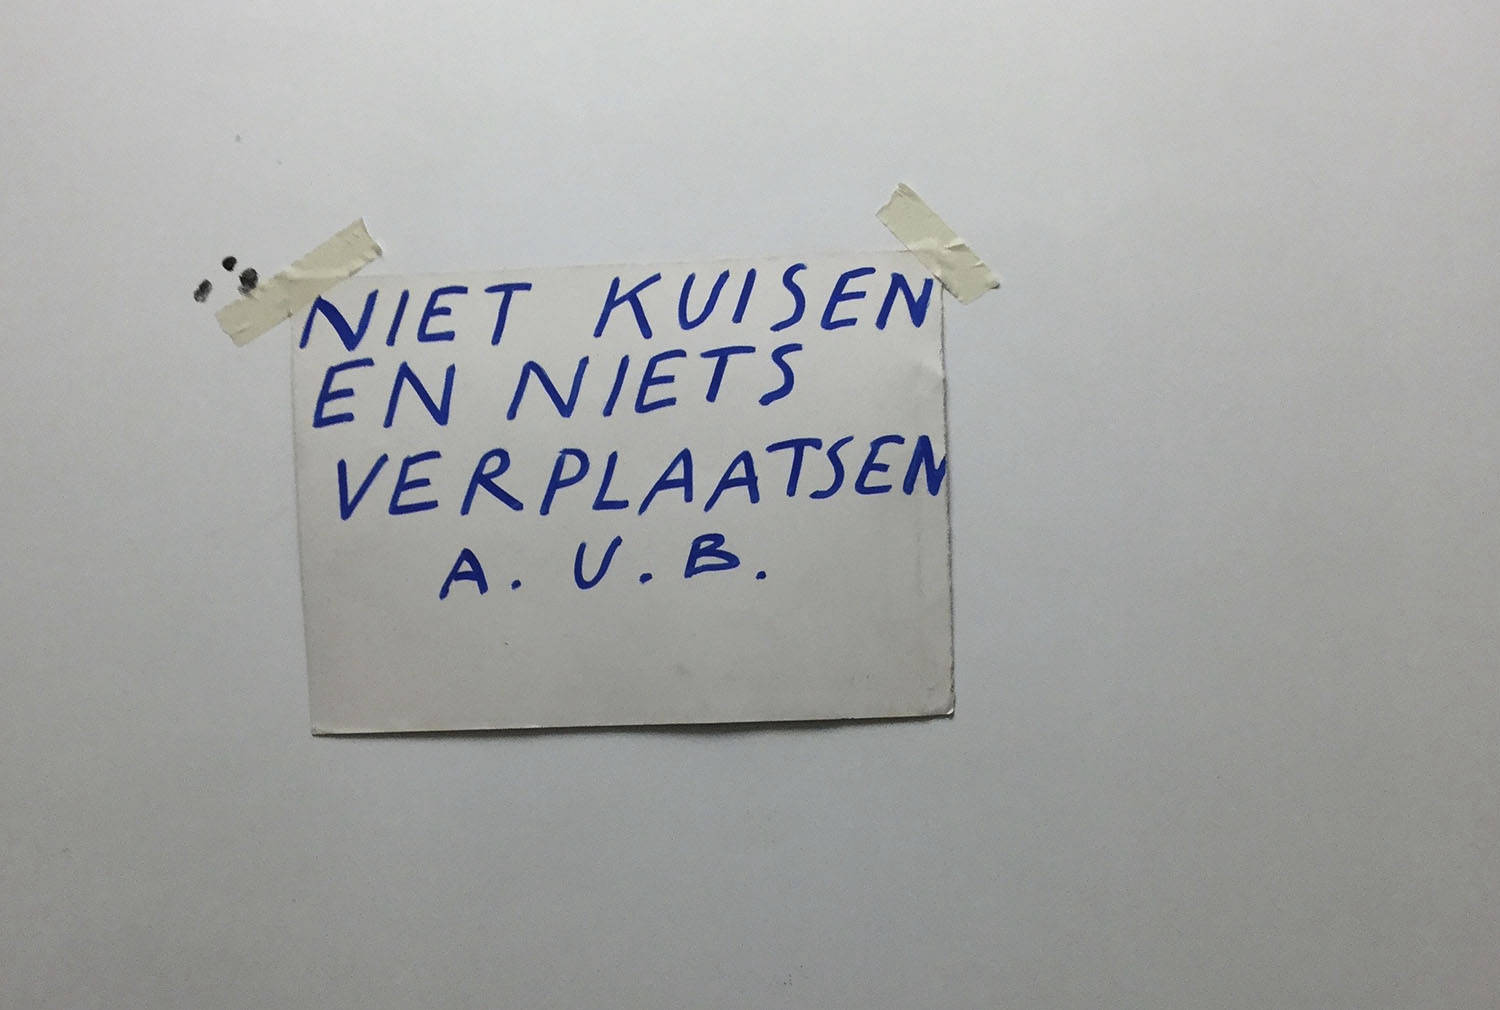 NIET KUISEN
EN NIETS
VERPLAATSEN
A.U.B.